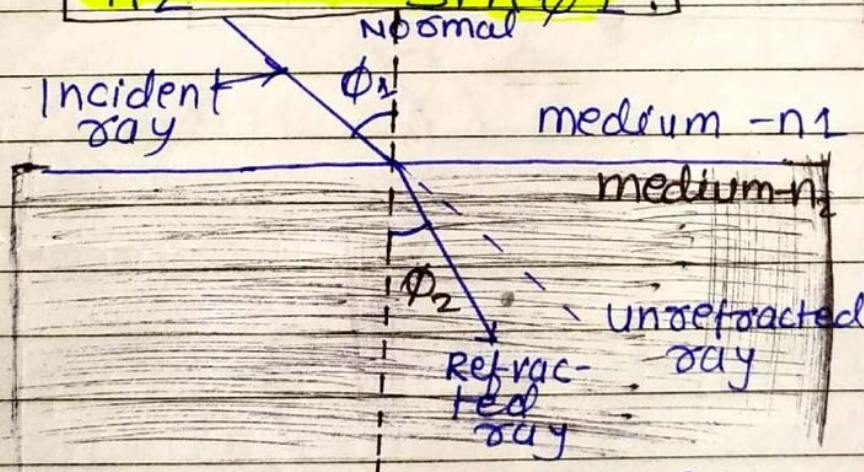 Normal
Incident
ray
ϕ1
medium -n1
medium-n2
ϕ2
unrefracted
ray
Refrac-
ted
ray